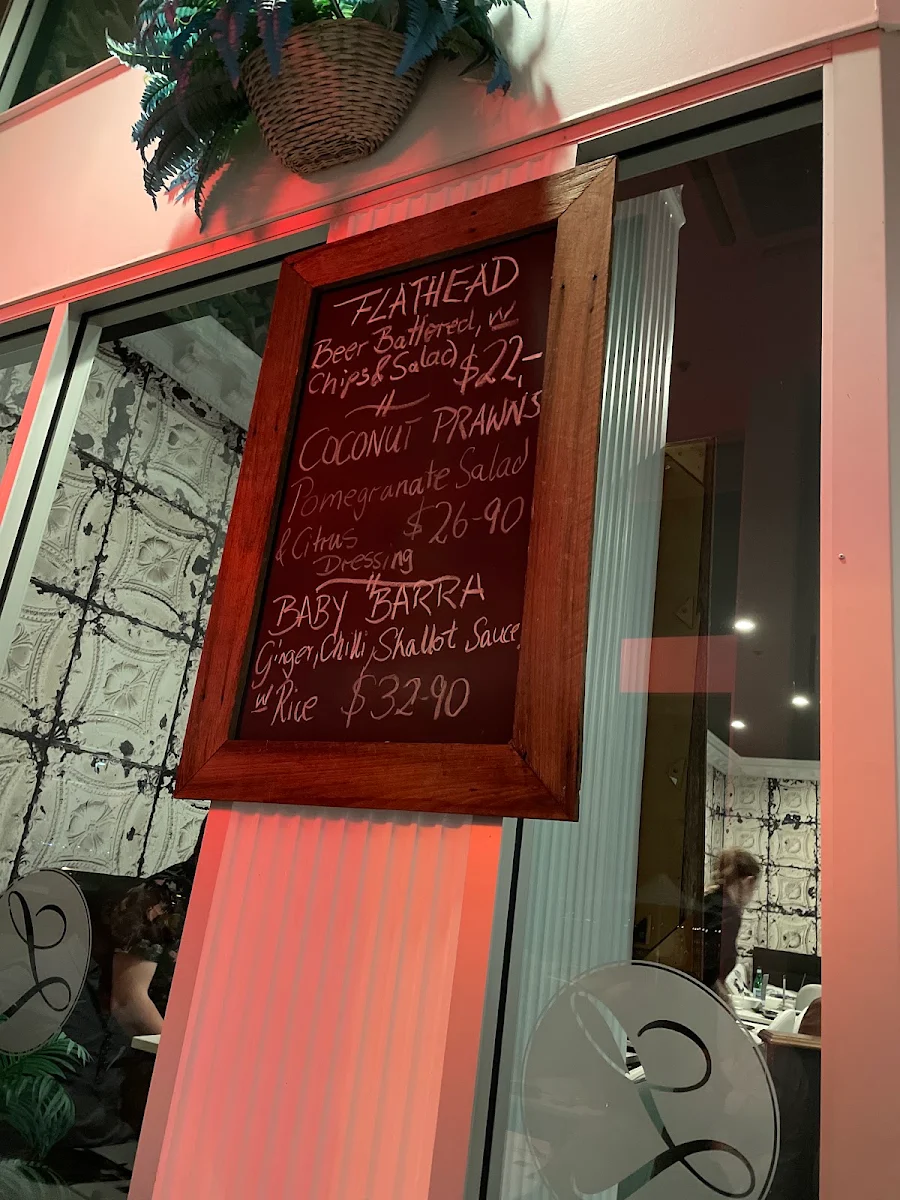 FLATHEAD
Beer Battered, w
Chips & Salad $22,-
COCONUT PRAWNS
Pomegranate Salad
& Citrus $26-90
Dressing
BABY BARRA
Ginger, Chilli, Shallot Sauce
w Rice $32-90
L
L